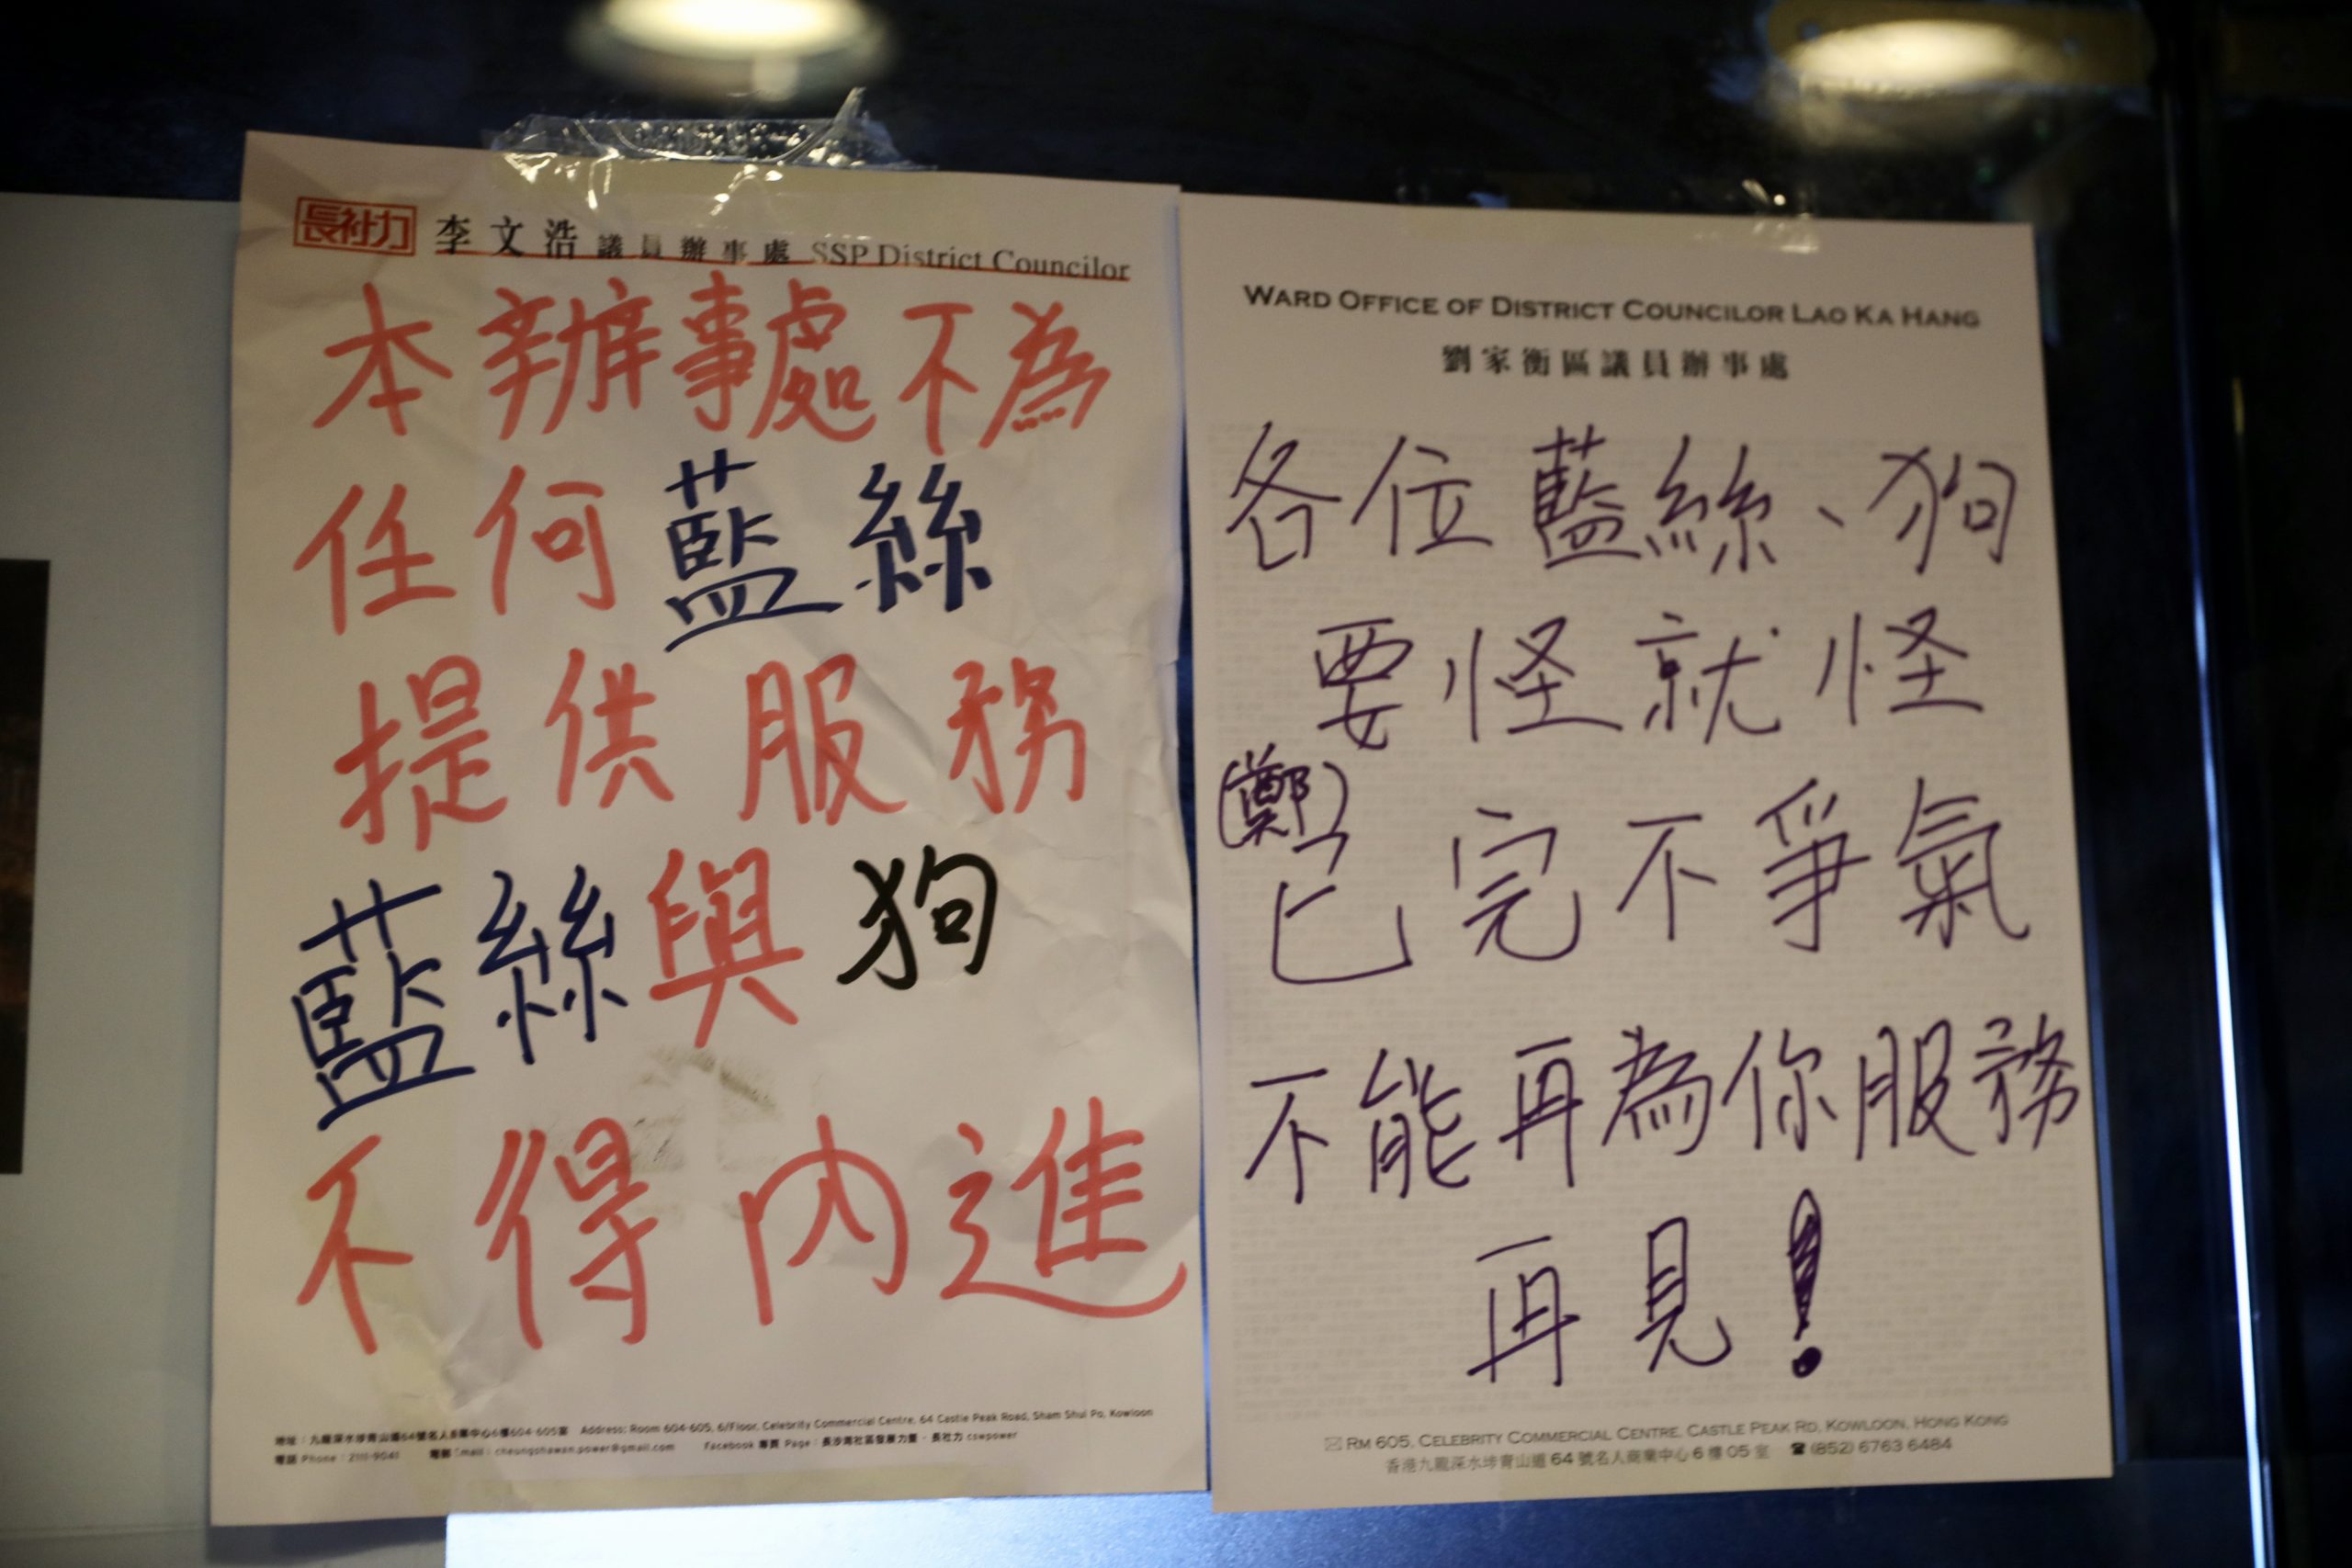 長社力 李文浩 議員辦事處 SSP District Councilor
本辦事處不為
任何藍絲
提供服務
藍絲與狗
不得內進
地址：九龍深水埗青山道64號名人商業中心6樓604-605室 Address: Room 604-605, 6/Floor, Celebrity Commercial Centre, 64 Castle Peak Road, Sham Shui Po, Kowloon
電話 Phone : 2111-9041 電郵 Email : cheungshawan.power@gmail.com Facebook 專頁 Page : 長沙灣社區發展力量 - 長社力 cswpower
WARD OFFICE OF DISTRICT COUNCILOR LAO KA HANG
劉家衡區議員辦事處
各位藍絲、狗
要怪就怪
(鄭)
完不爭氣
不能再為你服務
再見！
RM 605, CELEBRITY COMMERCIAL CENTRE, CASTLE PEAK RD, KOWLOON, HONG KONG
香港九龍深水埗青山道 64 號名人商業中心 6 樓 05 室 ☎ (852) 6763 6484